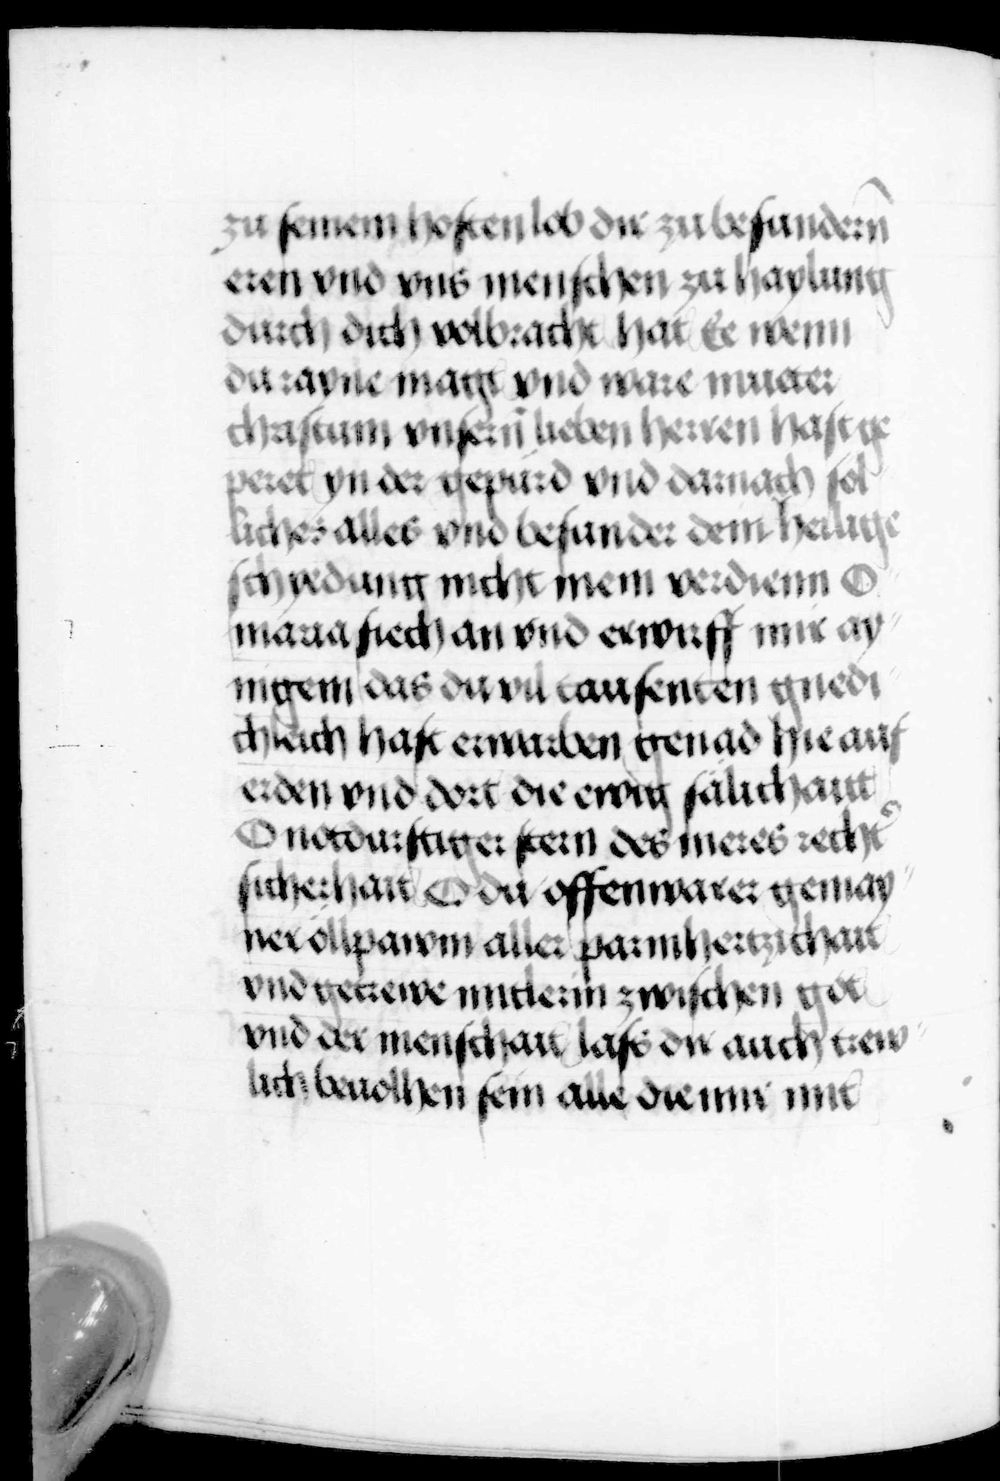 zu seinem hosten lob dir zu besundern̄
eren vnd vns menschen zu haylung
durch dich volbracht hat Ee wenn
du rayne magt vnd ware mueter
christum vnsern̄ lieben herren hast ge
peret yn der gepürd vnd darnach sol
liches alles vnd besunder dein heilige
schyedung nicht mein verdienn O
maria siech an vnd erwurff mir ay„
nigem das du vil tausenten gnedi„
chleich hast erwarben genad hie auf
erden vnd dort die ewig sälichait
O notdurftiger stern des meres rechtʾ
sicherhait O du offenwarer gemay„
ner öllpawm aller parmhertzichait
vnd getrewe mitlerin zwischen got
vnd der menschait lass dir auch trew„
lich beuolhen sein alle die mir mit